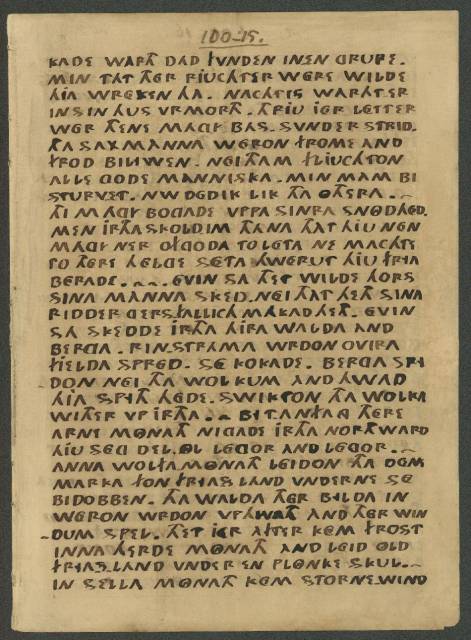 100-15.
KADE WARTH DAD FUNDEN INEN GRUPE.
MIN TAT THER FIUCHTER WERE WILDE
HIA WREKEN HA. NACHTIS WARTH ER
IN SIN HUS VRMORTH. THRIU IER LETTER
WER THENE MAGY BAS. SUNDER STRID.
THA SAXMANNA WERON FROME AND
FROD BILIWEN. NEI THAM FLIUCHTON
ALLE GODE MANNISKA. MIN MAM BI
STURVET. NW DEDIK LIK THA OTHERA.
THI MAGY BOGADE UPPA SINRA SNODHED.
MEN IRTHA SKOLD.IM THANA THAT HIU NEN
MAGY NER OFGODA TO LETA NE MACHTE
TO THERE HELGE SETA HWERUT HIU FRIA
BERADE. EVIN SA THET WILDE HORS
SINA MANNA SKED. NEI THAT HETH SINA
RIDDER GERSFALLICH MAKAD HETH. EVIN
SA SKEDDE IRTHA HIRA WALDA AND
BERGA. RINSTRAMA WRDON OVIRA
FIELDA SPRED. SE KOKADE. BERGA SPI
DON NEI THA WOLKUM AND HWAD
HIA SPITH HEDE. SWIKTON THA WOLKA
WITHER UP IRTHA. BI T.ANFANG THERE
ARNE MONATH NIGADE IRTHA NORTHWARD
HIU SEG DEL. OL LEGOR AND LEGOR.
ANNA WOLFA MONATH LEIDON THA DENE
MARKA FON FRIAS LAND UNDERNE SE
BIDOBBEN. THA WALDA THER BILDA IN
WERON WRDON UPHYVATH AND THER WIN
DUM SPEL. THET IER AFTER KEM FROST
INNA HERDE MONATH AND LEID OLD
FRIAS.LAND UNDER EN PLONKE SKUL.
IN SELLA MONATH KEM STORNEWIND